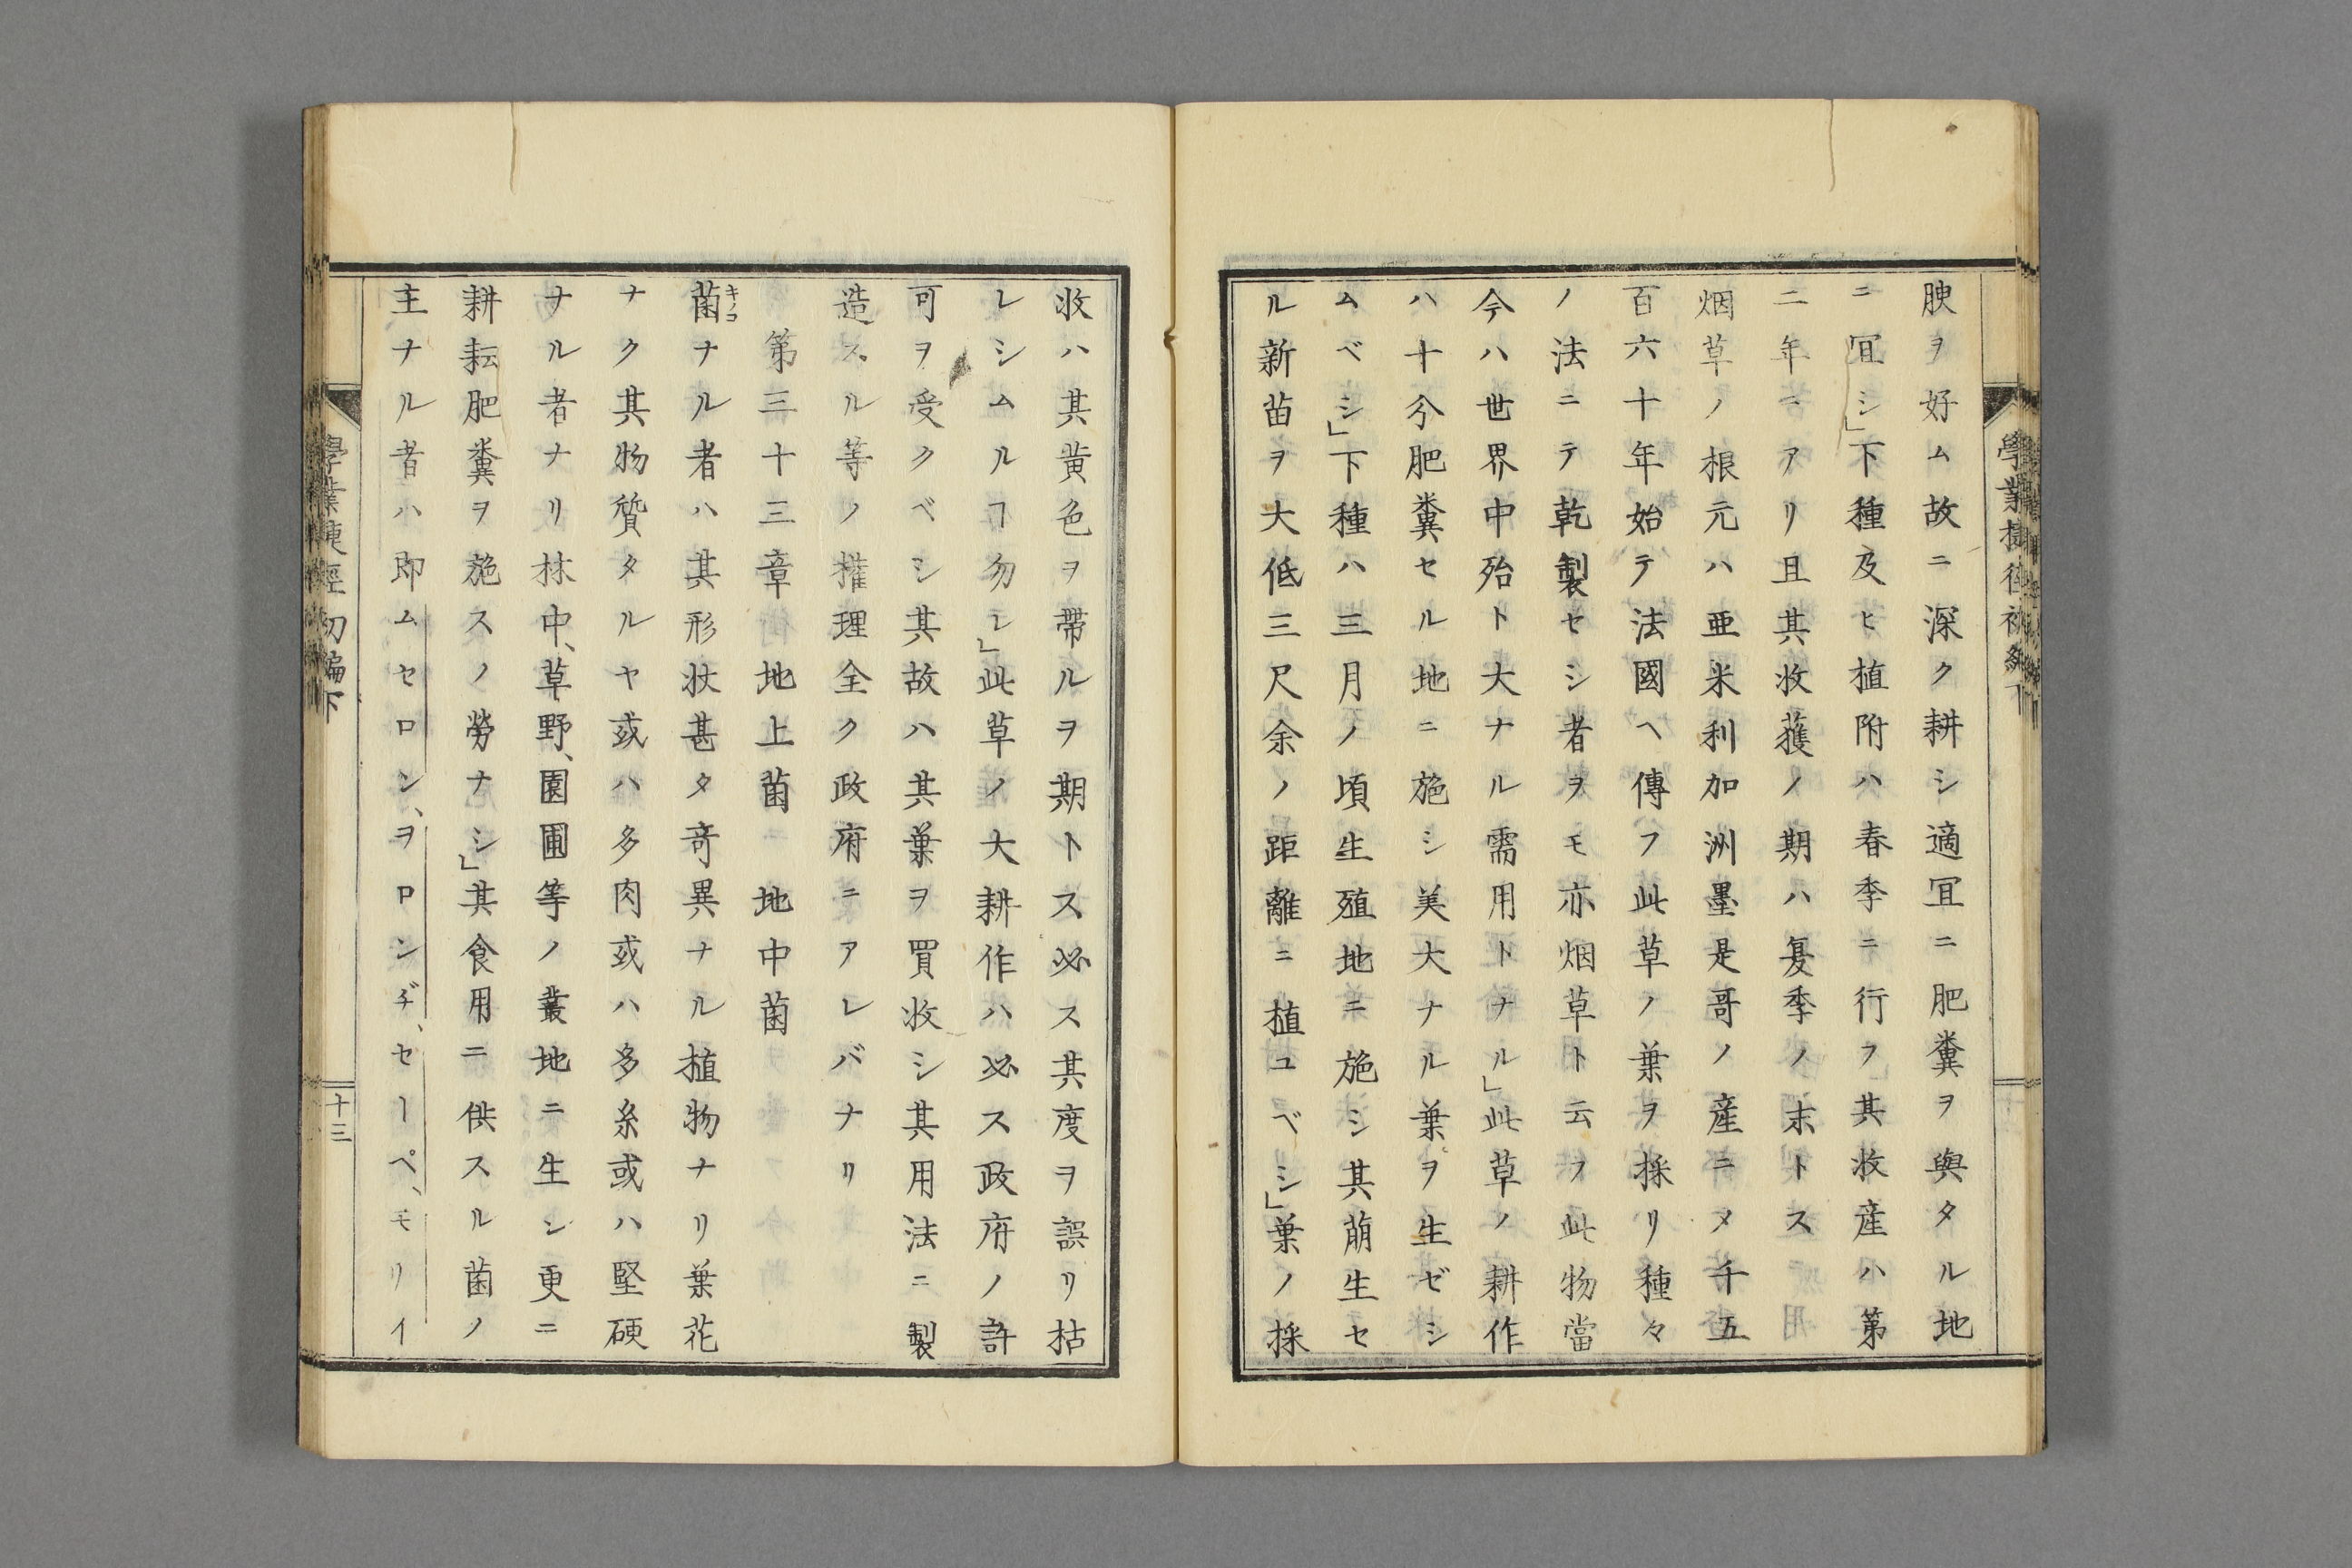 腴ヲ好ム故ニ深ク耕シ適冝ニ肥糞ヲ與タル地
ニ冝シ」下種及ヒ植附ハ春季ニ行フ其收産ハ第
二年ニアリ且其收蔰ノ期ハ夏季ノ末トス
烟草ノ根元ハ亜米利加洲墨是哥ノ産ニメ千五
百六十年始テ法國ヘ傳フ此草ノ葉ヲ採リ種々
ノ法ニテ乾製セシ者ヲモ亦烟草ト云フ此物當
今ハ世界中殆ト大ナル需用トナル」此草ノ耕作
ハ十分肥糞セル地ニ施シ美大ナル葉ヲ生ゼシ
ムベシ」下種ハ三月ノ頃生殖地ニ施シ其萠生セ
ル新苗ヲ大低三尺余ノ距離ニ植ユベシ」葉ノ採
收ハ其黄色ヲ帶ルヲ期トス必ス其度ヲ誤リ枯
レシムルヿ勿レ」此草ノ大耕作ハ必ス政府ノ許
可ヲ受クベシ其故ハ其葉ヲ買收シ其用法ニ製
造スル等ノ權理全ク政府ニアレバナリ
第三十三章 地上菌 地中菌
菌キノコナル者ハ其形状甚タ竒異ナル植物ナリ葉花
ナク其物質タルヤ或ハ多肉或ハ多糸或ハ堅硬
ナル者ナリ林中、草野、園圃等ノ叢地ニ生シ更ニ
耕耘肥糞ヲ施スノ勞ナシ」其食用ニ供スル菌ノ
主ナル者ハ即ムセロン、ヲロンヂ、セーペ、モリイ
十三